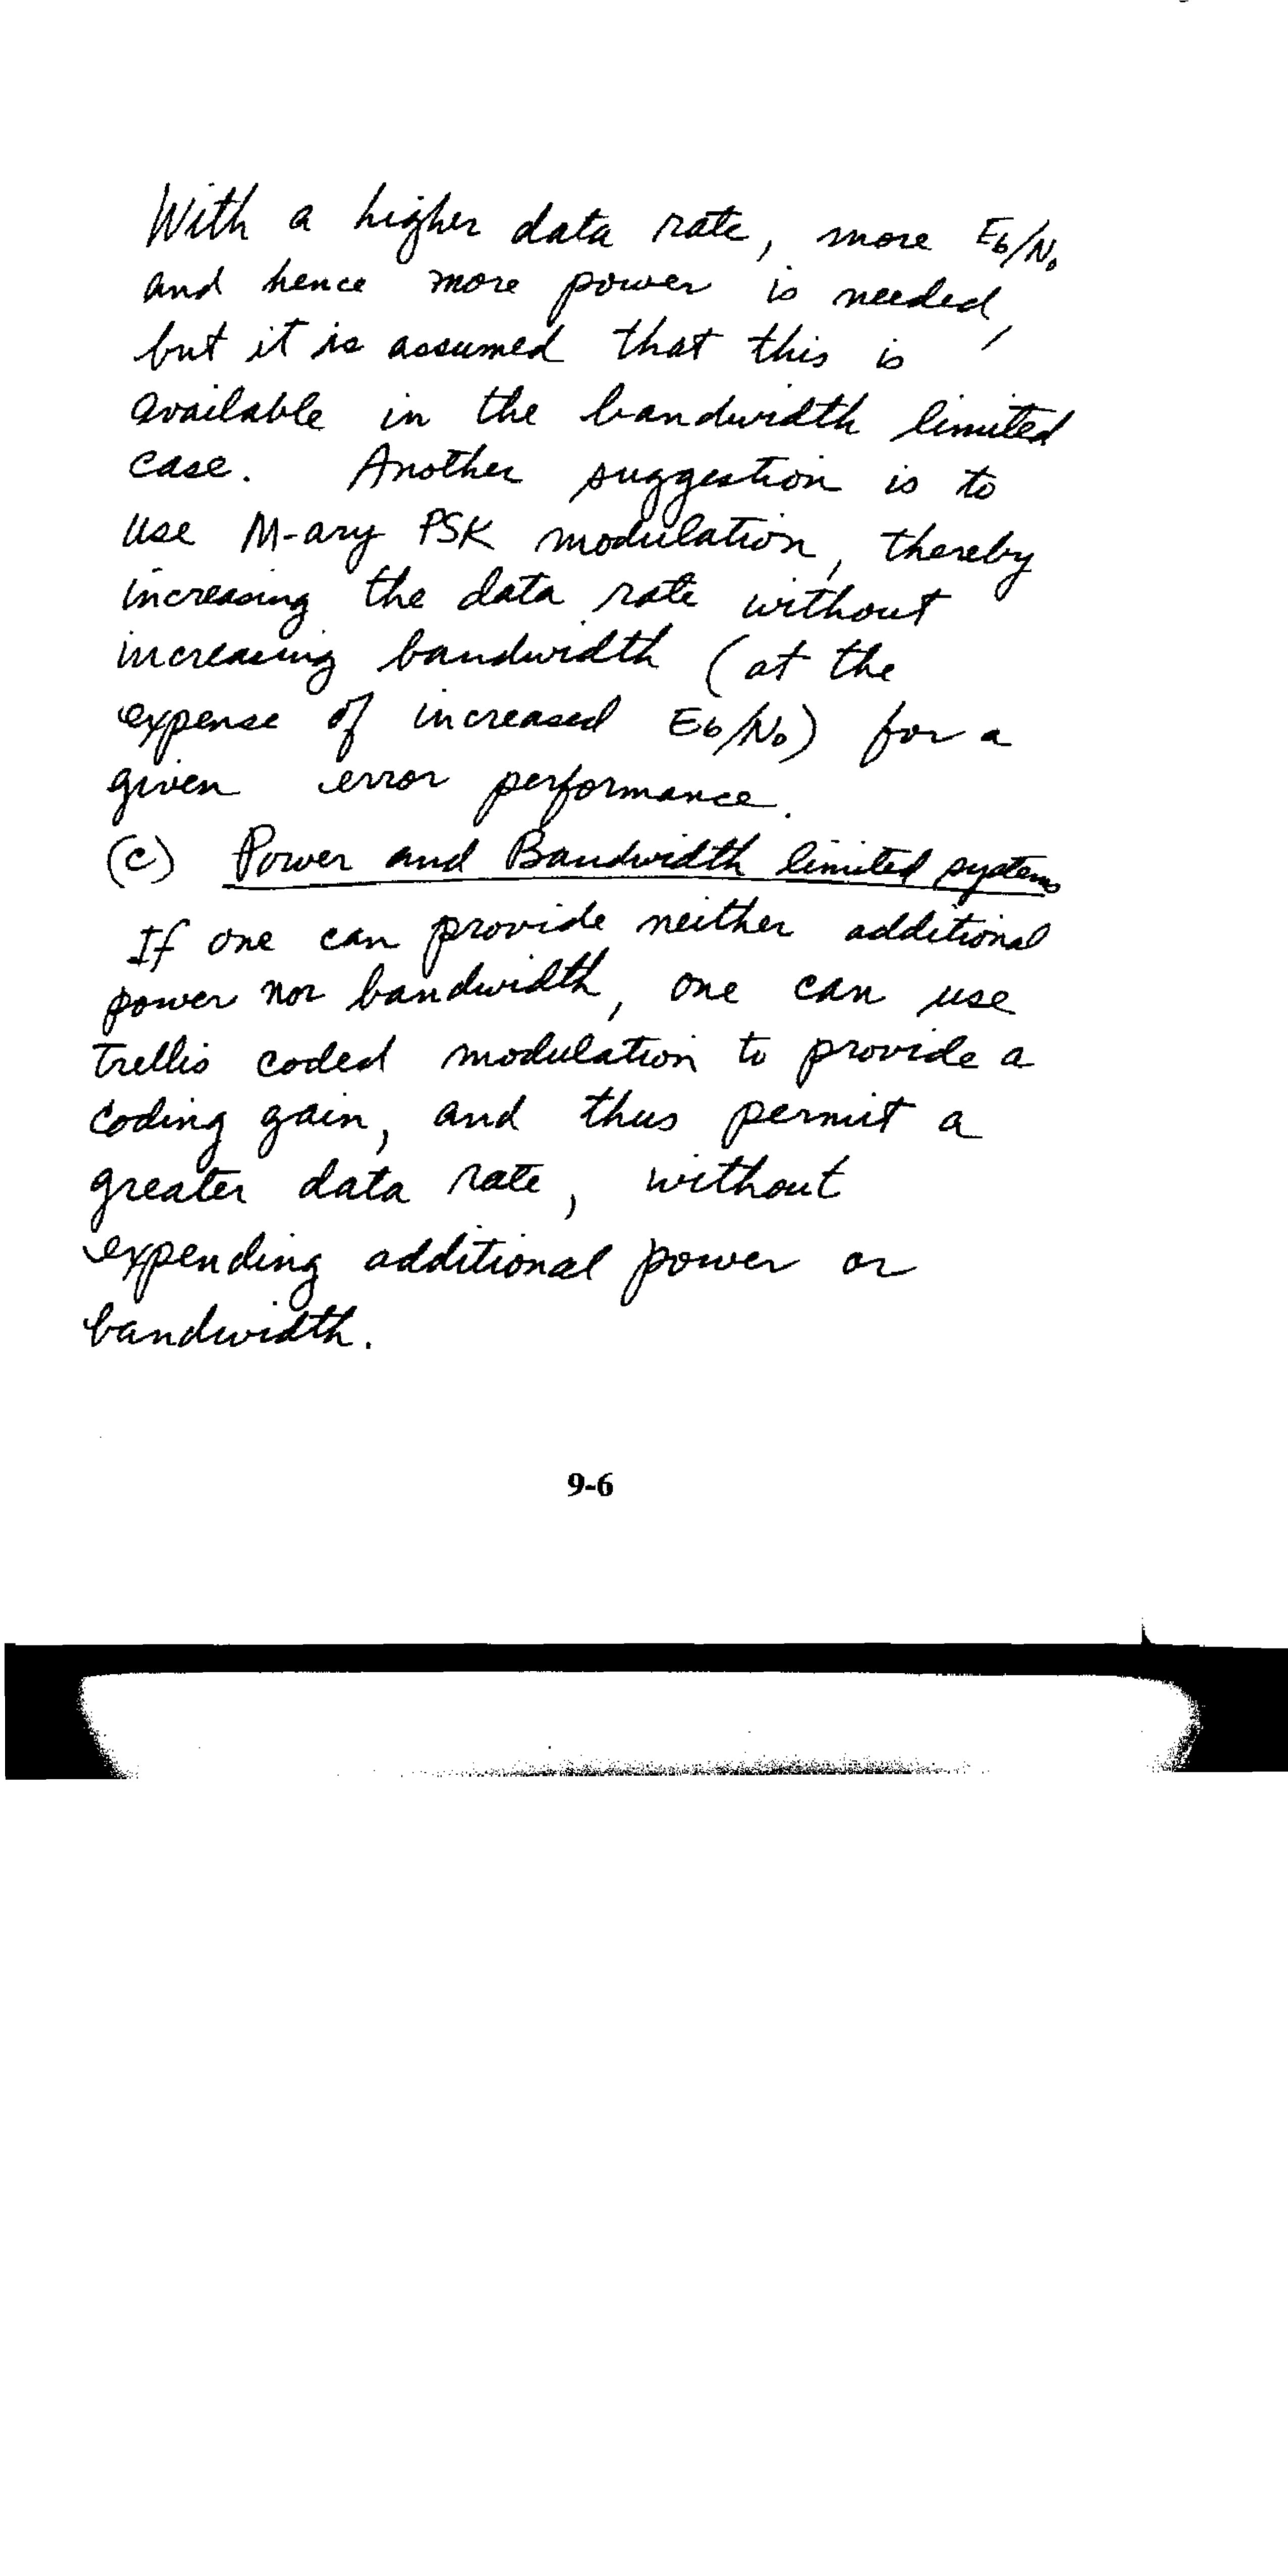 With a higher data rate, more Eb/N₀
and hence more power is needed,
but it is assumed that this is
available in the bandwidth limited
case. Another suggestion is to
use M-ary PSK modulation, thereby
increasing the data rate without
increasing bandwidth (at the
expense of increased Eb/N₀) for a
given error performance.
(c) Power and Bandwidth limited systems
If one can provide neither additional
power nor bandwidth, one can use
trellis coded modulation to provide a
coding gain, and thus permit a
greater data rate, without
expending additional power or
bandwidth.
9-6